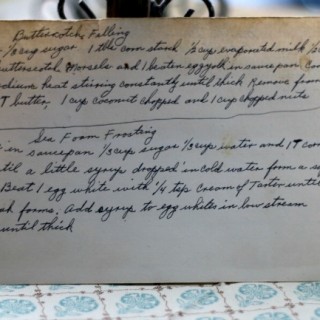 Butterscotch Filling
1/2 cup sugar 1 tbls corn starch 1/2 cup evaporated milk 1/3
butterscotch Morsels and 1 beaten egg yolk in saucepan Coo
medium heat stirring constantly until thick Remove from
T butter, 1 cup coconut chopped and 1 cup chopped nuts
Sea Foam Frosting
in saucepan 1/3 cup sugar 1/3 cup water and 1 T corn
til a little syrup dropped in cold water from a
Beat 1 egg white with 1/4 tsp Cream of Tartar until
forms. Add syrup to egg whites in low stream
until thick